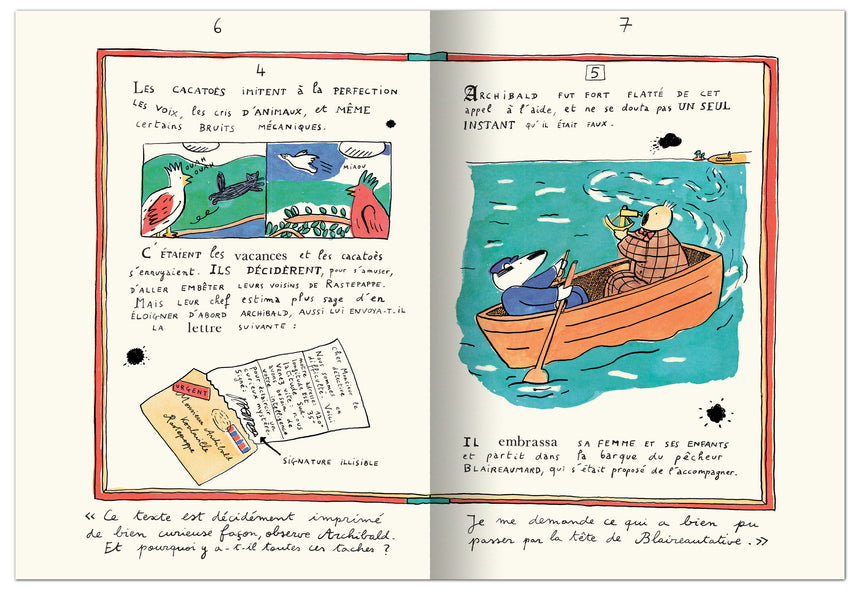 6
4
LES CACATOÈS imitENT à la PERFECTION
LES VOIX, les cris D'ANIMAUX, et MÊME
certains BRUITS MÉCANIQUES.
OUAH
OUAH
MIAOU
C'ÉTAIENT les vacances et les cacatoès
s'ennuyaient. ILS DÉCIDÈRENT, pour s'amuser,
D'ALLER EMBÊTER LEURS VOISINS DE RASTEPAPPE.
MAIS LEUR chef estima plus sage d'en
ÉLOIGNER D'ABORD ARCHIBALD, AUSSI LUI ENVOYA-T.IL
LA lettre SUIVANTE :
URGENT
Monsieur Archibald
Rastepappe
Cher Monsieur le
détective
Nous sommes en
difficulté. Voici
notre adresse: 120°
longitude est 35°
latitude sud.
Venez vite, nous
avons besoin de
votre intelligence
pour éclaircir un
curieux mystère.
Signé:
SIGNATURE ILLISIBLE
« Ce texte est décidément imprimé
de bien curieuse façon, observe Archibald.
Et pourquoi y a-t-il toutes ces taches ?
7
5
ARCHIBALD FUT FORT FLATTÉ DE CET
appel à l'aide, et ne se douta pas UN SEUL
INSTANT QU'IL ÉTAIT FAUX.
IL embrassa SA FEMME ET SES ENFANTS
et partit dans la barque du pêcheur
BLAIREAUMARD, qui s'était proposé de l'accompagner.
Je me demande ce qui a bien pu
passer par la tête de Blaireautative. »